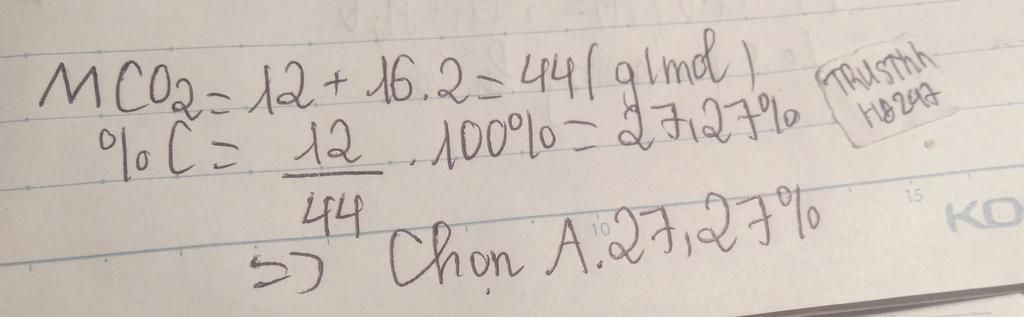 MCO2 = 12 + 16.2 = 44 ( g/mol )
%C = 12/44 . 100% = 27,27%
=> Chọn A. 27,27%
10
15
KO